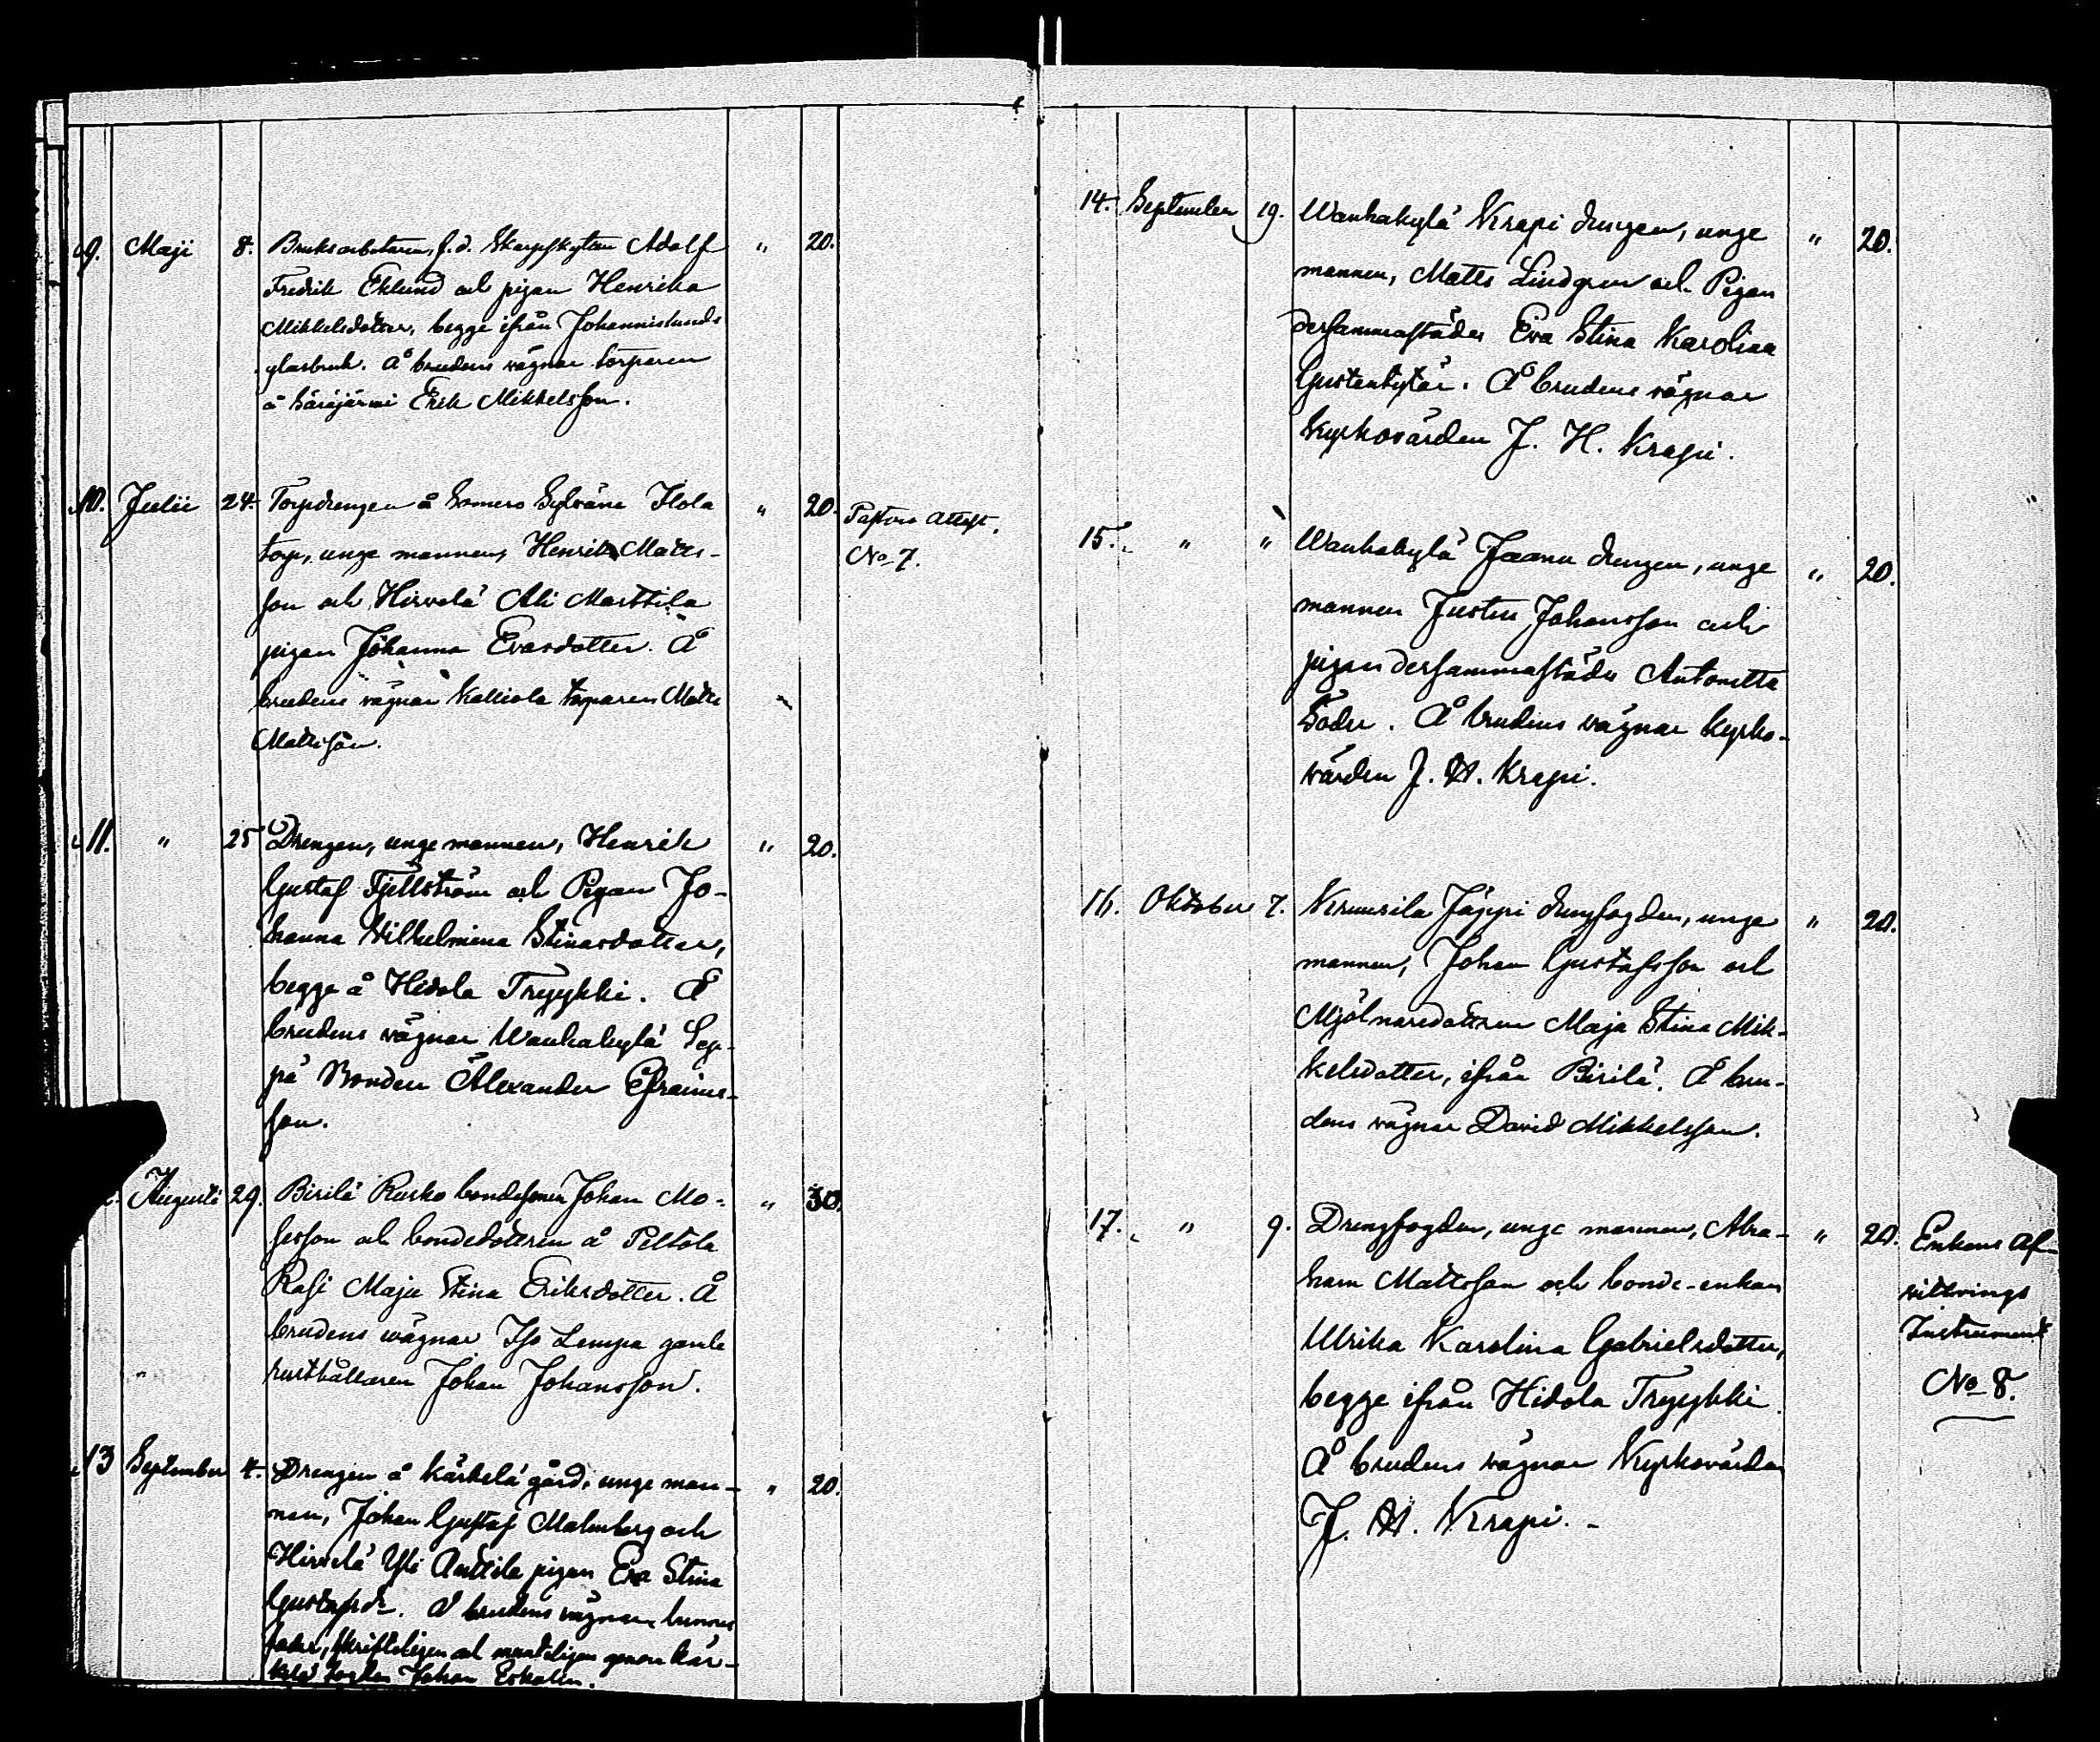 9. Maji 8. Bruksarbetaren, f. d. Skarpskytten Adolf " 20.
Fredrik Eklund och pigan Henrika
Mikkelsdotter, begge ifrån Johannislunds
glasbruk. Å brudens vägnar torparen
å Särajärvi Erik Mikkelsson.
10. Julii 24. Torpdrengen å Somero Sylvāna Ilola " 20. Pastors Attest.
torp, unge mannen, Henrik Matts- No 7.
son och Hirvelä Ali Marttila
pigan Johanna Evasdotter. Å
brudens vägnar Kalliola torparen Matts
Mattsson.
11. " 25 Drengen, unge mannen, Henrik " 20.
Gustaf Fjellström och Pigan Jo-
hanna Wilhelmina Stinasdotter,
begge å Hidola Tryykki. Å
brudens vägnar Wanhakylä Sep-
pä Bonden Alexander Efraims-
son.
Augusti 29. Birilä Rusko bondesonen Johan Mo- " 30.
sesson och bondedottren å Peltola
Rasi Maja Stina Eriksdotter. Å
brudens vägnar Iso Lempa gamle
rusthållaren Johan Johansson.
13 September 4. Drengen å Kärkelä gård, unge man- " 20.
nen, Johan Gustaf Malmberg och
Hirvelä Yli Anttila pigan Eva Stina
Gustafsdr. Å brudens vägnar hennes
fader, skriftligen och muntligen genom Kär-
kelä fogden Johan Eskolin.
14. September 19. Wanhakylä Krapi drengen, unge " 20.
mannen, Matts Lindgren och Pigan
dersammastädes Eva Stina Karolina
Gustentytär. Å brudens vägnar
Kyrkovärden J. H. Krapi.
15. " " Wanhakylä Jaanu drengen, unge " 20.
mannen Justus Johansson och
pigan dersammastädes Antonetta
Söder. Å brudens vägnar kyrko-
värden J. H. Krapi.
16. Oktober 7. Kruusila Jäppi drengfogden, unge " 20.
mannen, Johan Gustafsson och
Mjölnaredottren Maja Stina Mik-
kelsdotter, ifrån Birilä. Å bru-
dens vägnar David Mikkelsson.
17. " 9. Drengfogden, unge mannen, Abra- " 20. Enkans Af-
ham Mattsson och bonde-enkan vittrings
Ulrika Karolina Gabrielsdotter, Instrument
begge ifrån Hidola Tryykki. No 8.
Å brudens vägnar Kyrkovärden
J. H. Krapi.